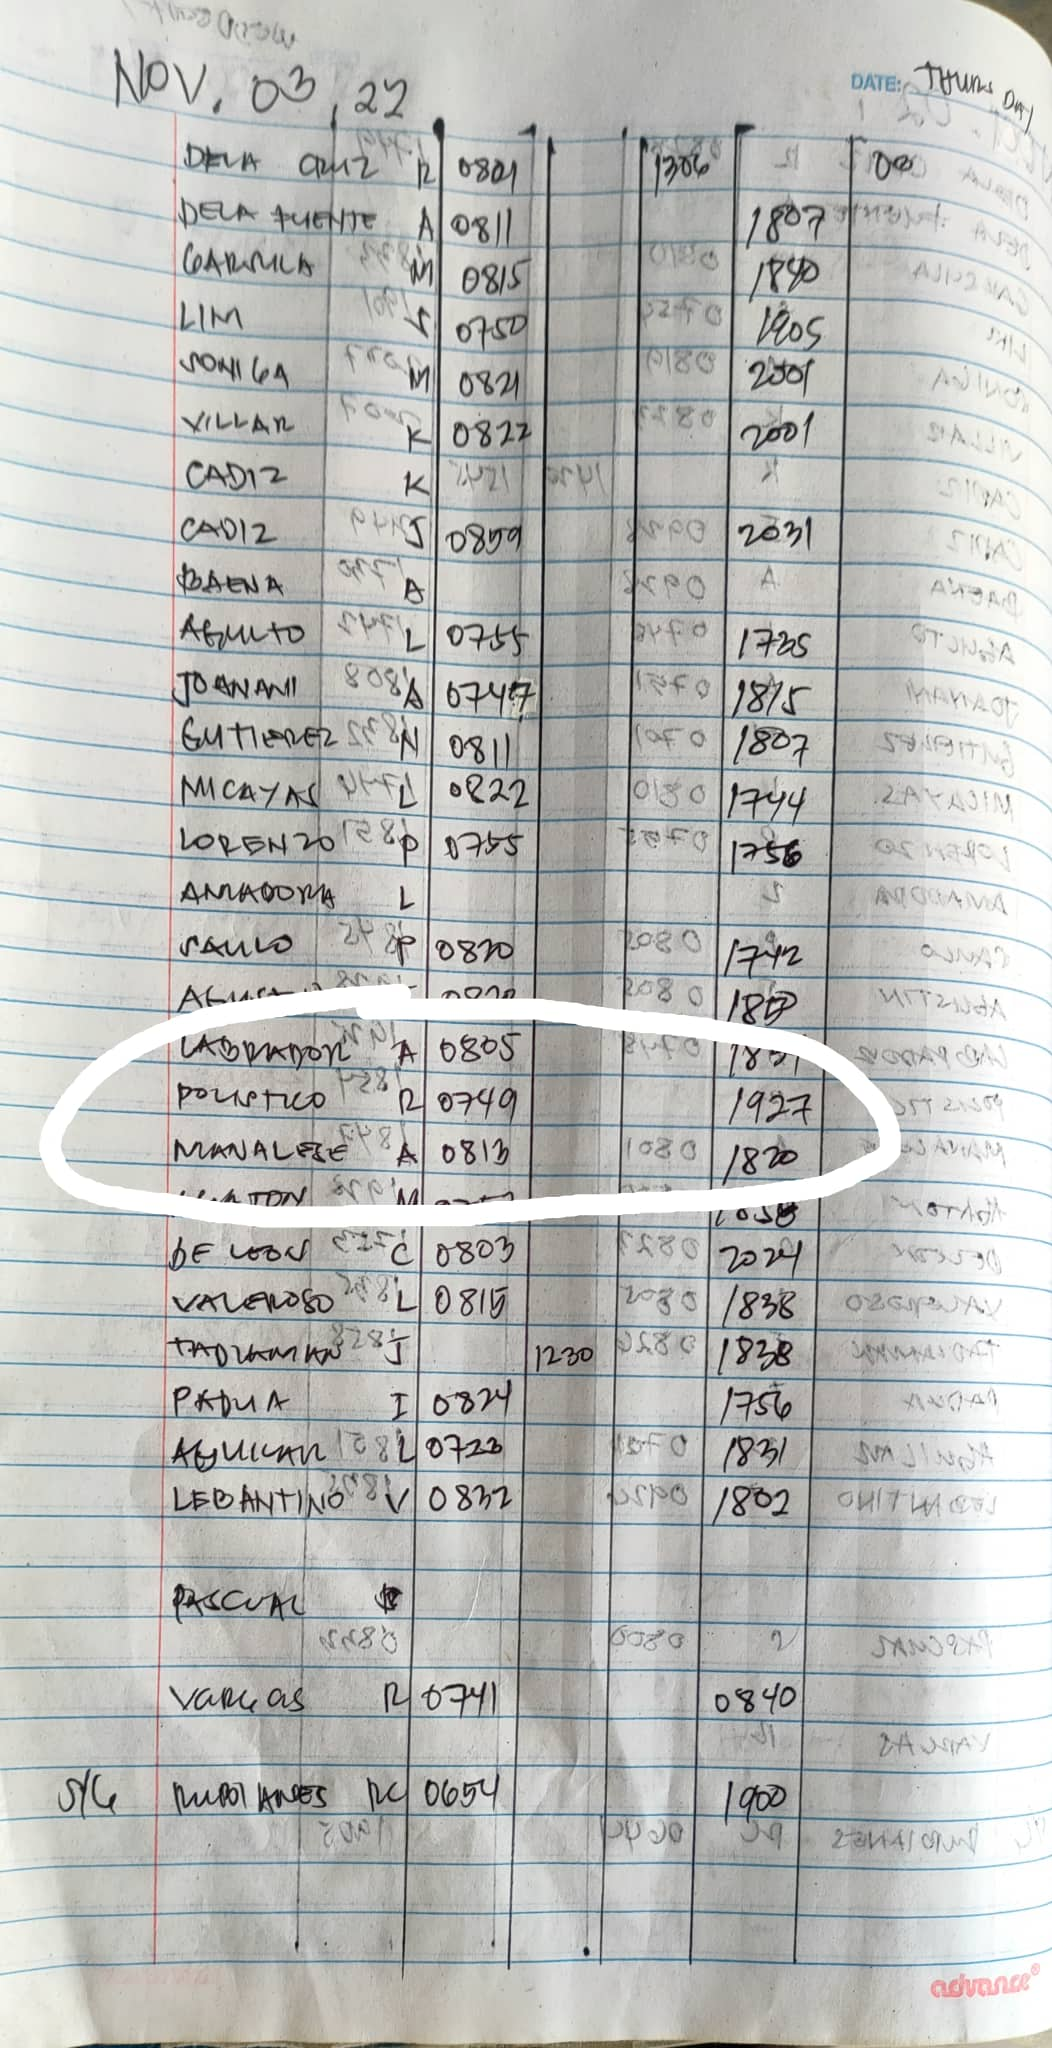 NOV. 03, 22
DATE: THURS DAY
DELA CRUZ R 0801 1306 OB
DELA FUENTE A 0811 1807
GARSULA M 0815 1840
LIM J 0750 1905
SONIGA M 0821 2001
VILLAR K 0822 2001
CADIZ K
CADIZ J 0859 2031
BAENA A
AGULTO L 0755 1735
JOANANI A 0747 1815
GUTIEREZ N 0811 1807
MICAYAS L 0822 1744
LORENZO P 0755 1756
AMADORA L
SAULO P 0820 1742
0820
LABRADOR A 0805 1831
POLISTICO R 0749 1927
MANALESE A 0813 1820
M
DE LEON C 0803 2024
VALEROSO L 0815 1838
TADIAMAN J 1230 1838
PADUA I 0824 1756
AGUILAR L 0723 1831
LEBANTINO V 0832 1802
PASCUAL
VARGAS R 0741 0840
S/G RUBIANES RC 0654 1900
advance